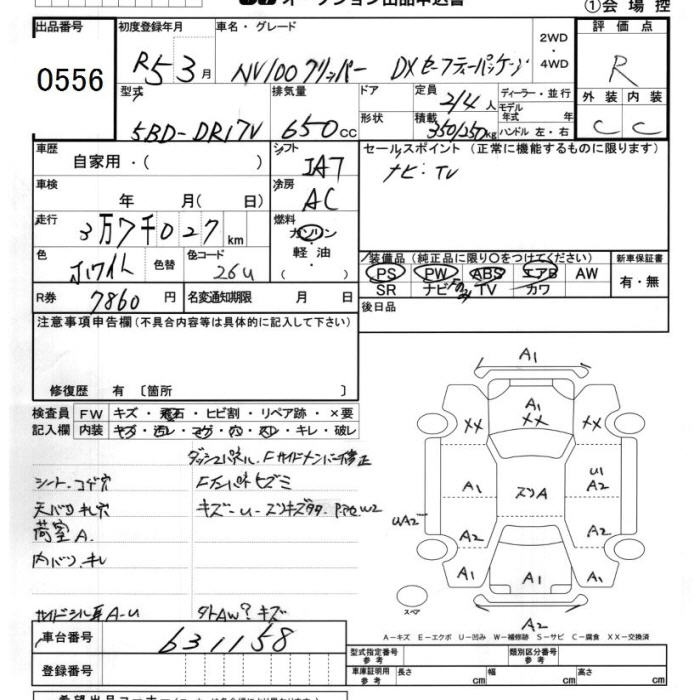 オークション出品申込書
①会場控
出品番号 初度登録年月 車名・グレード 2WD・4WD 評価点
0556 R5 3月 NV100クリッパー DXセーフティーパッケージ R
型式 排気量 ドア 定員 2/4人 ディーラー・並行 外装 内装
5BD-DR17V 650cc 形状 積載 350/250kg モデル年式 年 ハンドル 左・右 C C
車歴 自家用・( ) シフト IA7 セールスポイント(正常に機能するものに限ります)
車検 年 月(日) 冷房 AC ナビ・TV
走行 3万7千027km 燃料 ガソリン・軽油・( )
色 ホワイト 色替 色コード 26U
装備品(純正品に限り〇をつけてください) 新車保証書
PS PW ABS エアB AW 有・無
SR ナビ TV カワ
R券 7860円 名変通知期限 月 日
後日品
注意事項申告欄(不具合内容等は具体的に記入して下さい)
修復歴 有〔箇所 〕
検査員記入欄 FW キズ・飛石・ヒビ割・リペア跡・×要
内装 キズ・汚レ・コゲ・穴・スレ・キレ・破レ
ダッシュパネル、Fサイドメンバー修正
シート、コゲ穴 Fインパネヒズミ
天バリ 汚レ穴 キズ-U-スリキズタタ
荷室A
内バリ、キレ
サイドシル耳A-U タトAW?キズ
車台番号 631158
登録番号
A1
A1
XX XX XX
A1 ズリA U1 A2
UA2 A2 A2
A1 A1 A2
A2
スペア
A-キズ E-エクボ U-凹み W-補修跡 S-サビ C-腐食 XX-交換済
型式指定番号 参考 類別区分番号 参考
車庫証明用 参考 長さ cm 幅 cm 高さ cm